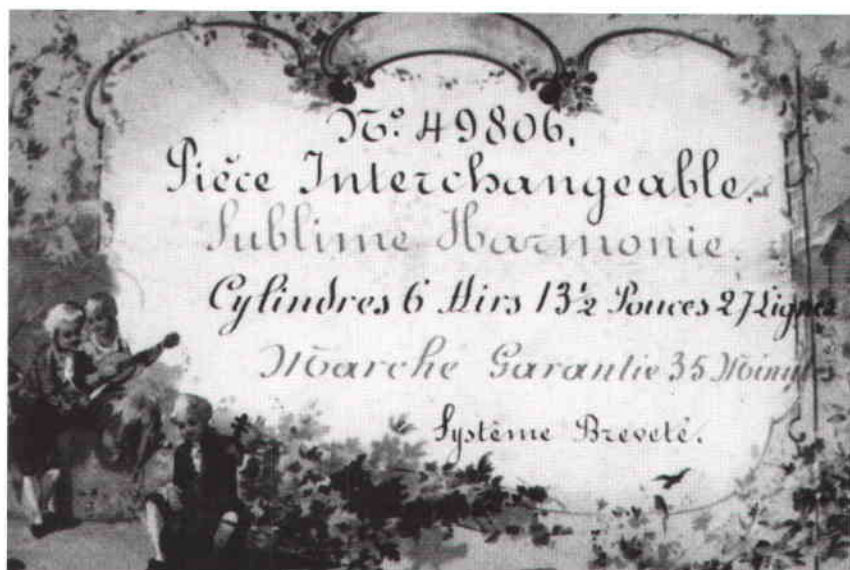 No. 49806.
Pièce Interchangeable.
Sublime Harmonie.
Cylindres 6 Airs 13½ Pouces 27 Lignes
Marche Garantie 35 Minutes
Système Breveté.